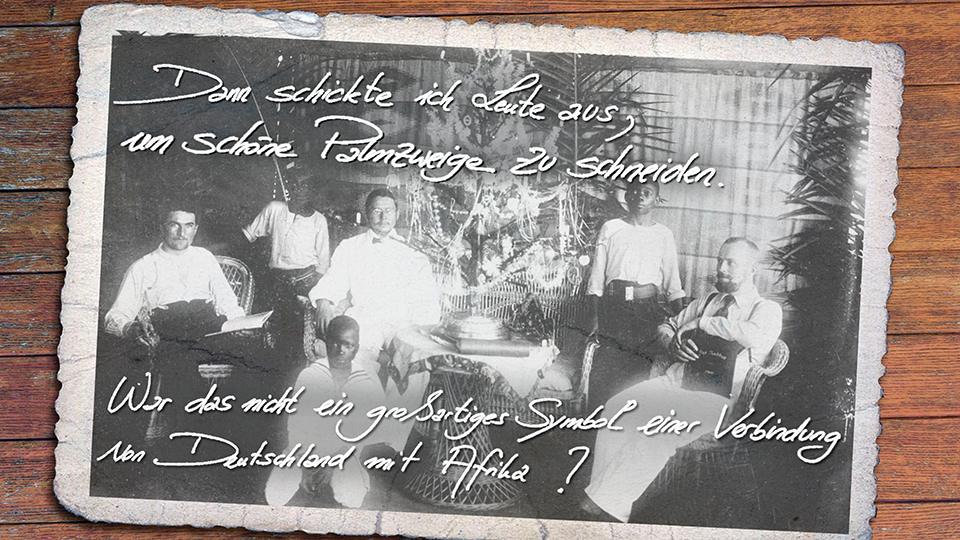 Dann schickte ich Leute aus,
um schöne Palmzweige zu schneiden.
War das nicht ein großartiges Symbol einer Verbindung
von Deutschland mit Afrika ?